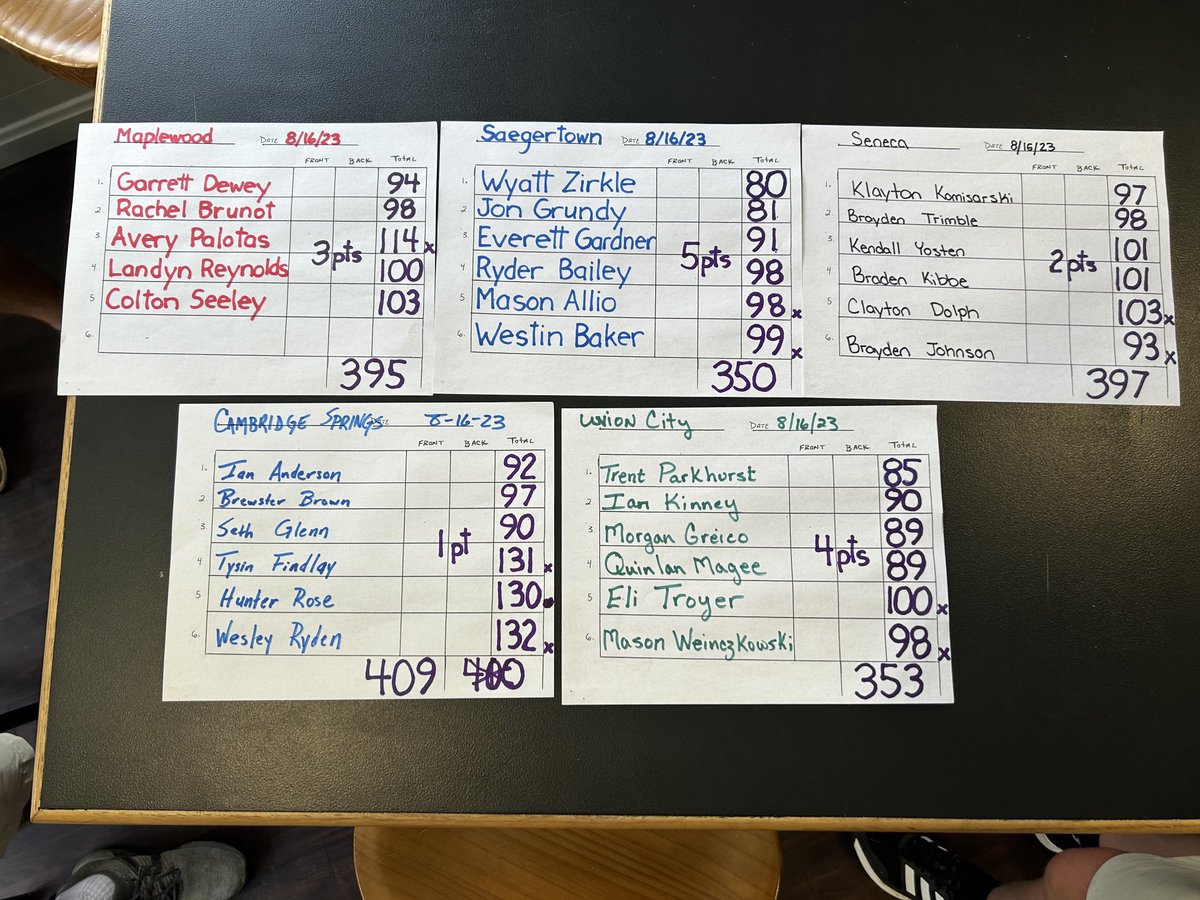 Maplewood DATE 8/16/23
FRONT BACK TOTAL
1. Garrett Dewey 94
2 Rachel Brunot 98
3 Avery Palotas 114 x
4 Landyn Reynolds 100
5 Colton Seeley 103
6.
3 pts
395
Saegertown DATE 8/16/23
FRONT BACK TOTAL
1. Wyatt Zirkle 80
2 Jon Grundy 81
3 Everett Gardner 91
4 Ryder Bailey 98
5 Mason Allio 98 x
6. Westin Baker 99 x
5 pts
350
Seneca DATE 8/16/23
FRONT BACK TOTAL
1. Klayton Komisarski 97
2 Brayden Trimble 98
3 Kendall Yosten 101
4 Braden Kibbe 101
5 Clayton Dolph 103 x
6. Brayden Johnson 93 x
2 pts
397
CAMBRIDGE SPRINGS 8-16-23
FRONT BACK TOTAL
1. Ian Anderson 92
2. Brewster Brown 97
3. Seth Glenn 90
4 Tysin Findlay 131 x
5 Hunter Rose 130
6. Wesley Ryden 132 x
1 pt
409
UNION CITY DATE 8/16/23
FRONT BACK TOTAL
1. Trent Parkhurst 85
2. Ian Kinney 90
3 Morgan Greico 89
4 Quinlan Magee 89
5 Eli Troyer 100 x
6. Mason Weinczkowski 98 x
4 pts
353